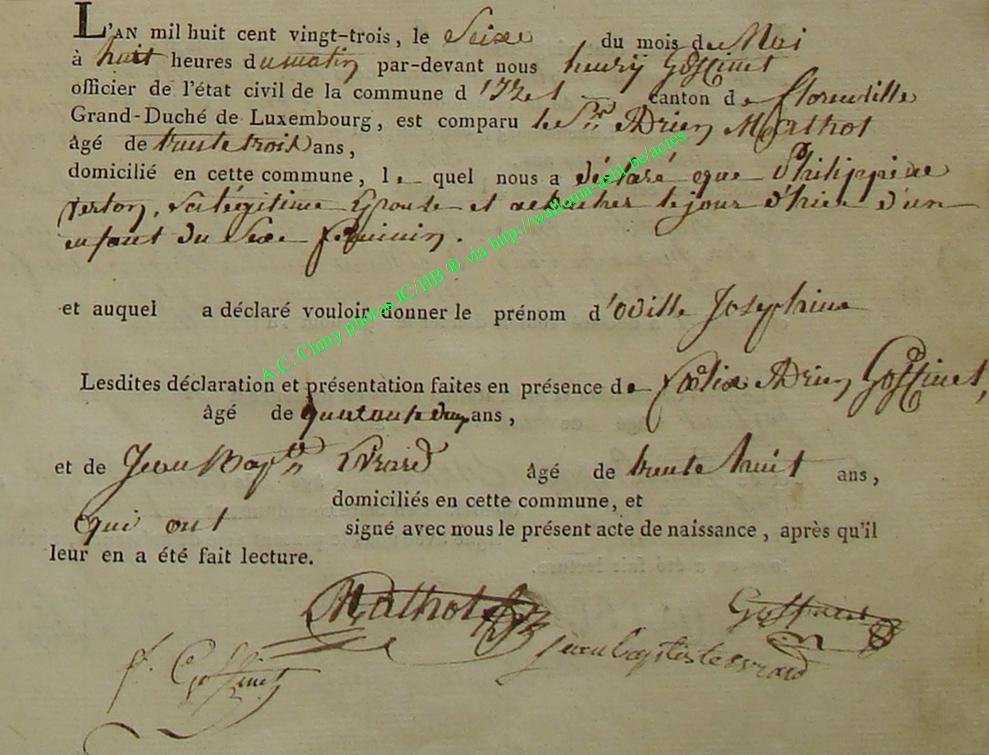 L'AN mil huit cent vingt-trois, le Seize du mois de Mai
à huit heures du matin par-devant nous henry Goffinet
officier de l'état civil de la commune d'Izel canton de florenville
Grand-Duché de Luxembourg, est comparu le Sr. Adrien Mathot
âgé de trente trois ans,
domicilié en cette commune, le quel nous a déclaré que Philippine
verton, Sa légitime Epouse est accouchée le jour d'hier d'un
enfant du Sexe féminin.
et auquel a déclaré vouloir donner le prénom d'Odille Josephine
Lesdites déclaration et présentation faites en présence de foelix Adrien Goffinet,
âgé de quarante ans,
et de Jean Bapte Evrard âgé de trente huit ans,
domiciliés en cette commune, et
qui ont signé avec nous le présent acte de naissance, après qu'il
leur en a été fait lecture.
Mathot
Goffinet
jean baptiste evrard
f. Goffinet
A.C. Chiny photos JC/HB ® via http://wallonia-asbl.be/actes